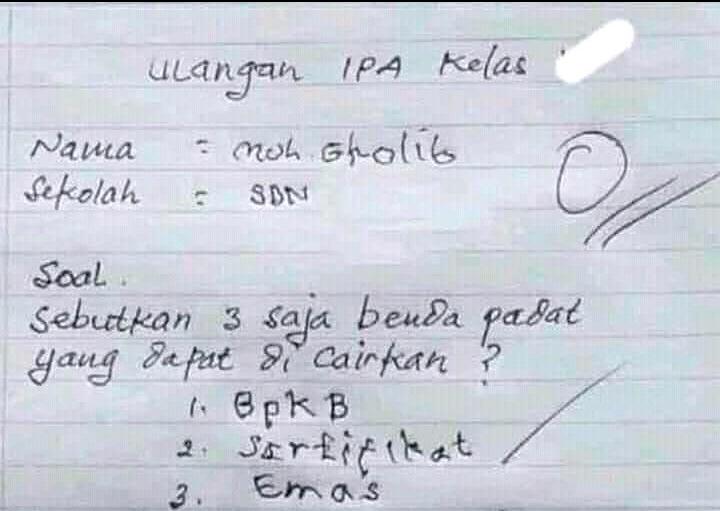 ulangan IPA Kelas
Nama = Moh. Gholib
Sekolah = SDN
0
Soal.
Sebutkan 3 saja benda padat
yang dapat di cairkan ?
1. BpkB
2. Sertifikat
3. Emas